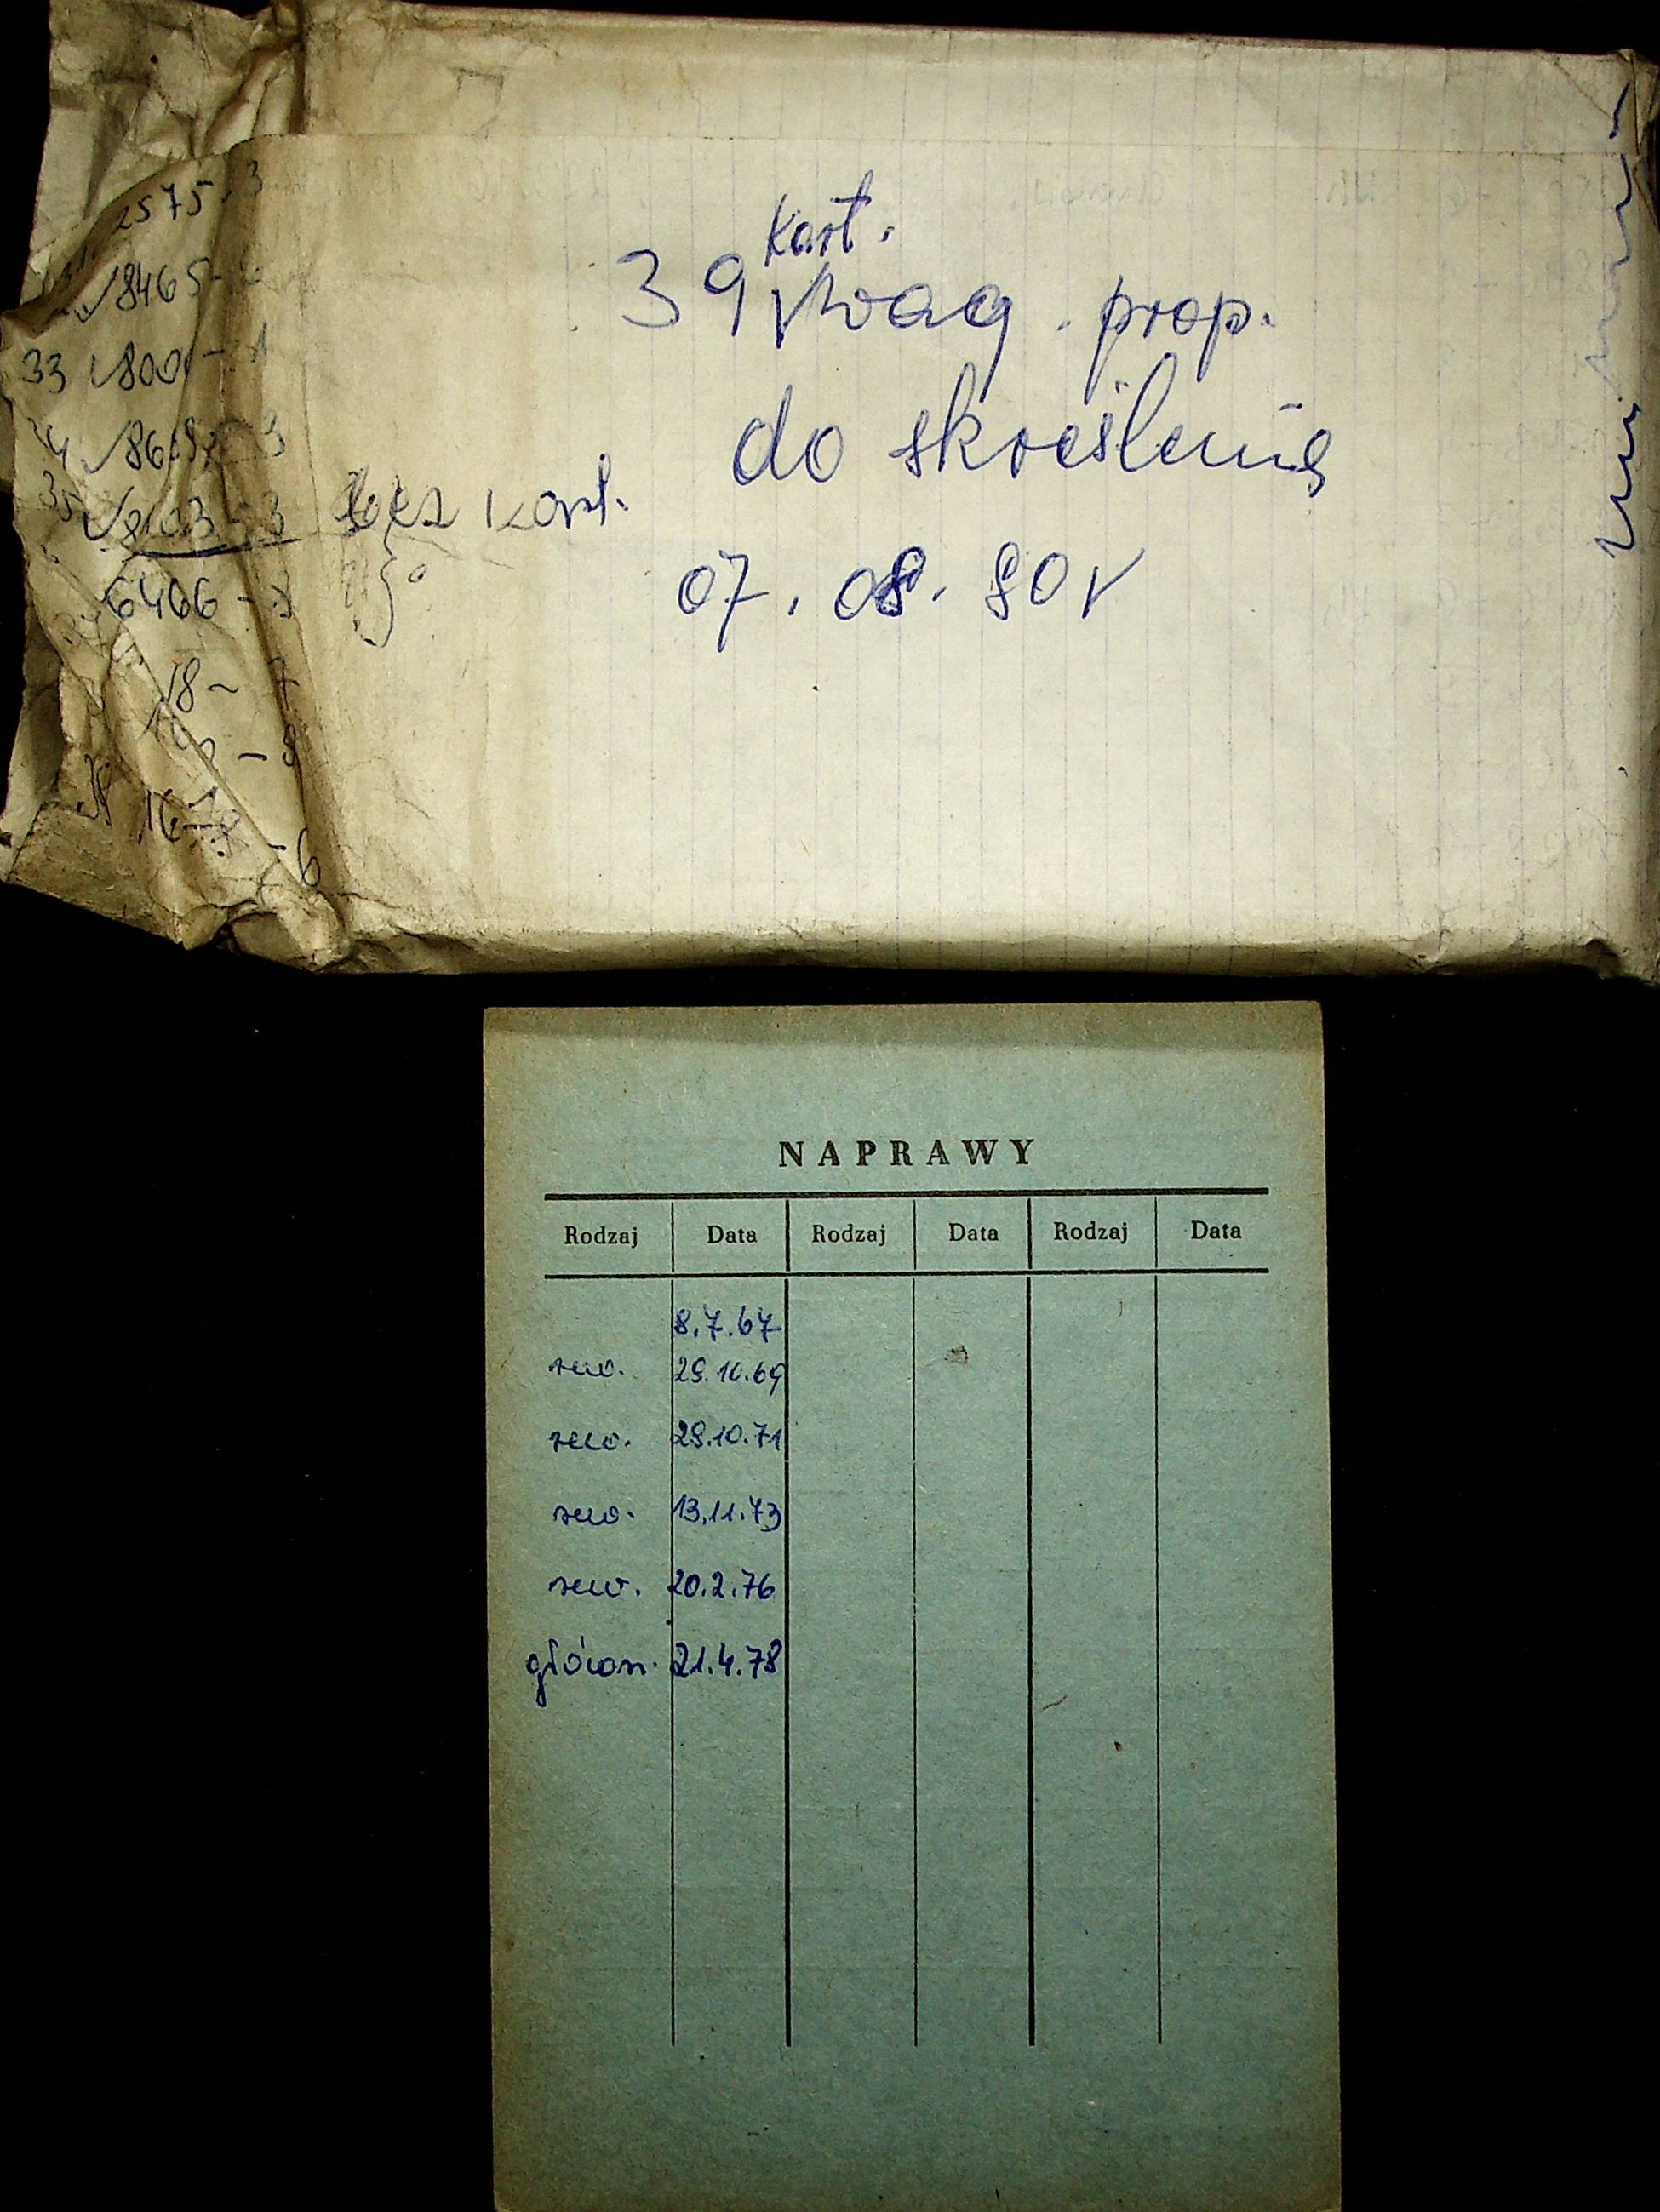 2575-3
8465-6
33 800
8103-3 bez kart.
6466
18- 7
16
-6
kart.
39 wag. prop.
do skreślenia
07.08.90r
NAPRAWY
Rodzaj Data Rodzaj Data Rodzaj Data
8.7.67
rew. 29.10.69
rew. 29.10.71
rew. 13.11.73
rew. 20.2.76
główn. 21.4.78